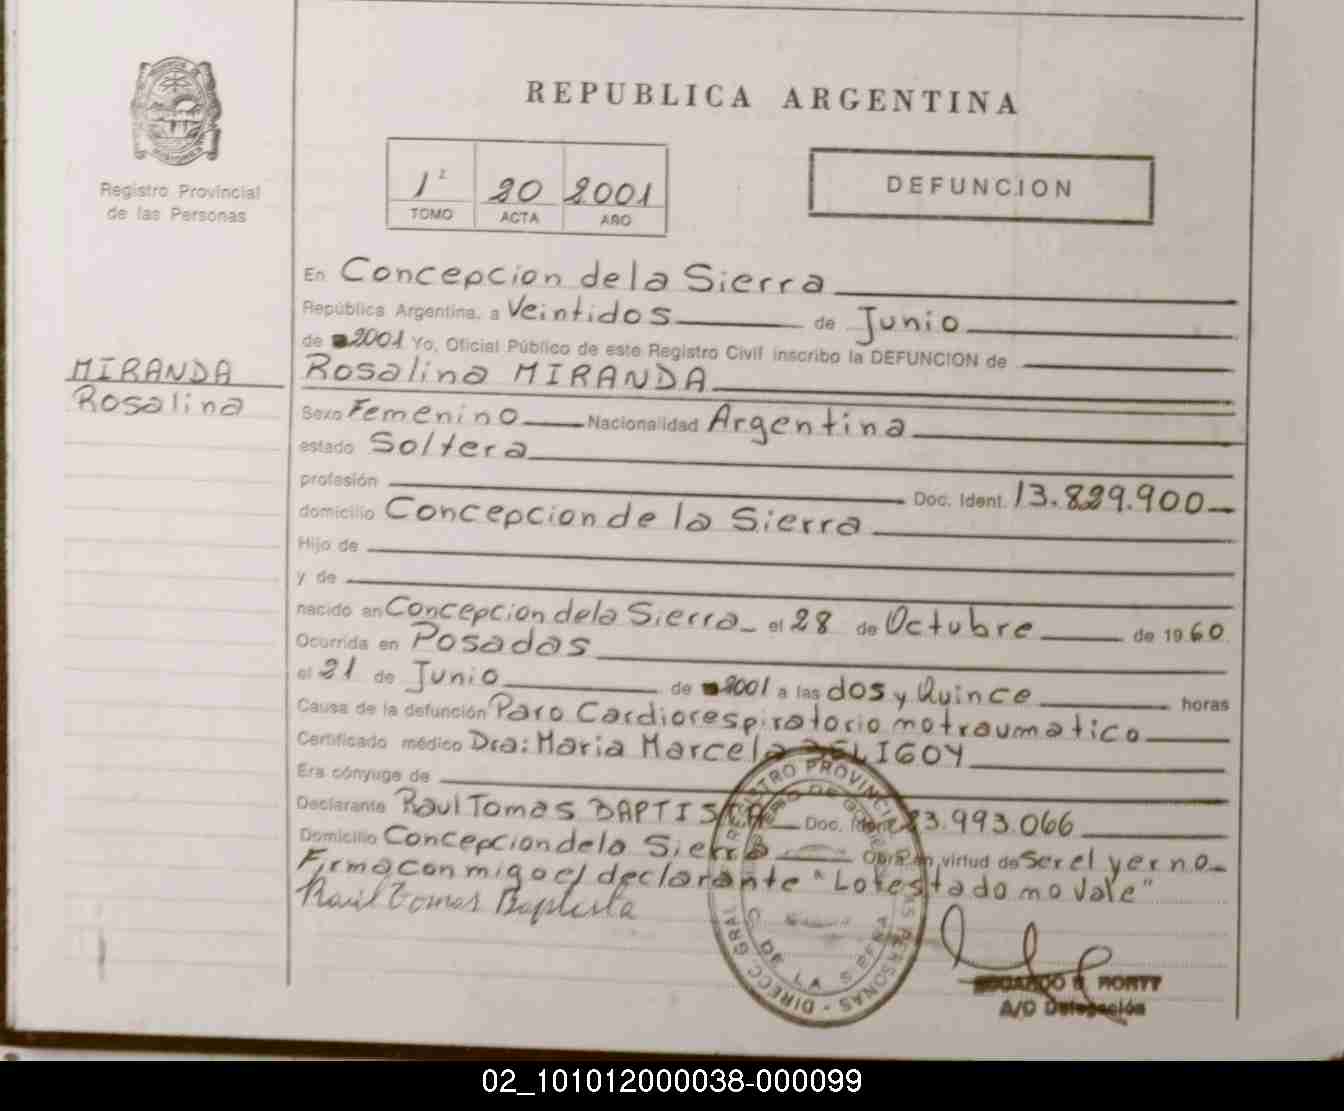 REPUBLICA ARGENTINA
Registro Provincial
de las Personas
1º 20 2001
TOMO ACTA AÑO
DEFUNCION
En Concepcion de la Sierra
República Argentina, a Veintidos de Junio
de 2001 Yo, Oficial Público de este Registro Civil inscribo la DEFUNCION de
MIRANDA
Rosalina
Rosalina MIRANDA
Sexo Femenino Nacionalidad Argentina
estado Soltera
profesión Doc. Ident. 13.829.900
domicilio Concepcion de la Sierra
Hijo de
y de
nacido en Concepcion de la Sierra el 28 de Octubre de 1960.
Ocurrida en Posadas
el 21 de Junio de 2001 a las dos y Quince horas
Causa de la defunción Paro Cardiorespiratorio no traumatico
Certificado médico Dra: Maria Marcela
Era cónyuge de
Declarante Raul Tomas BAPTISTA Doc. Ident. 23.993.066
Domicilio Concepcion de la Sierra Obra en virtud de Ser el yerno
Firma conmigo el declarante "Lo testado no vale"
Raúl Tomas Baptista
DIRECC. GRAL. REGISTRO PROVINCIAL PERSONAS
C. DE LA SIERRA
A/C Delegación
02_101012000038-000099